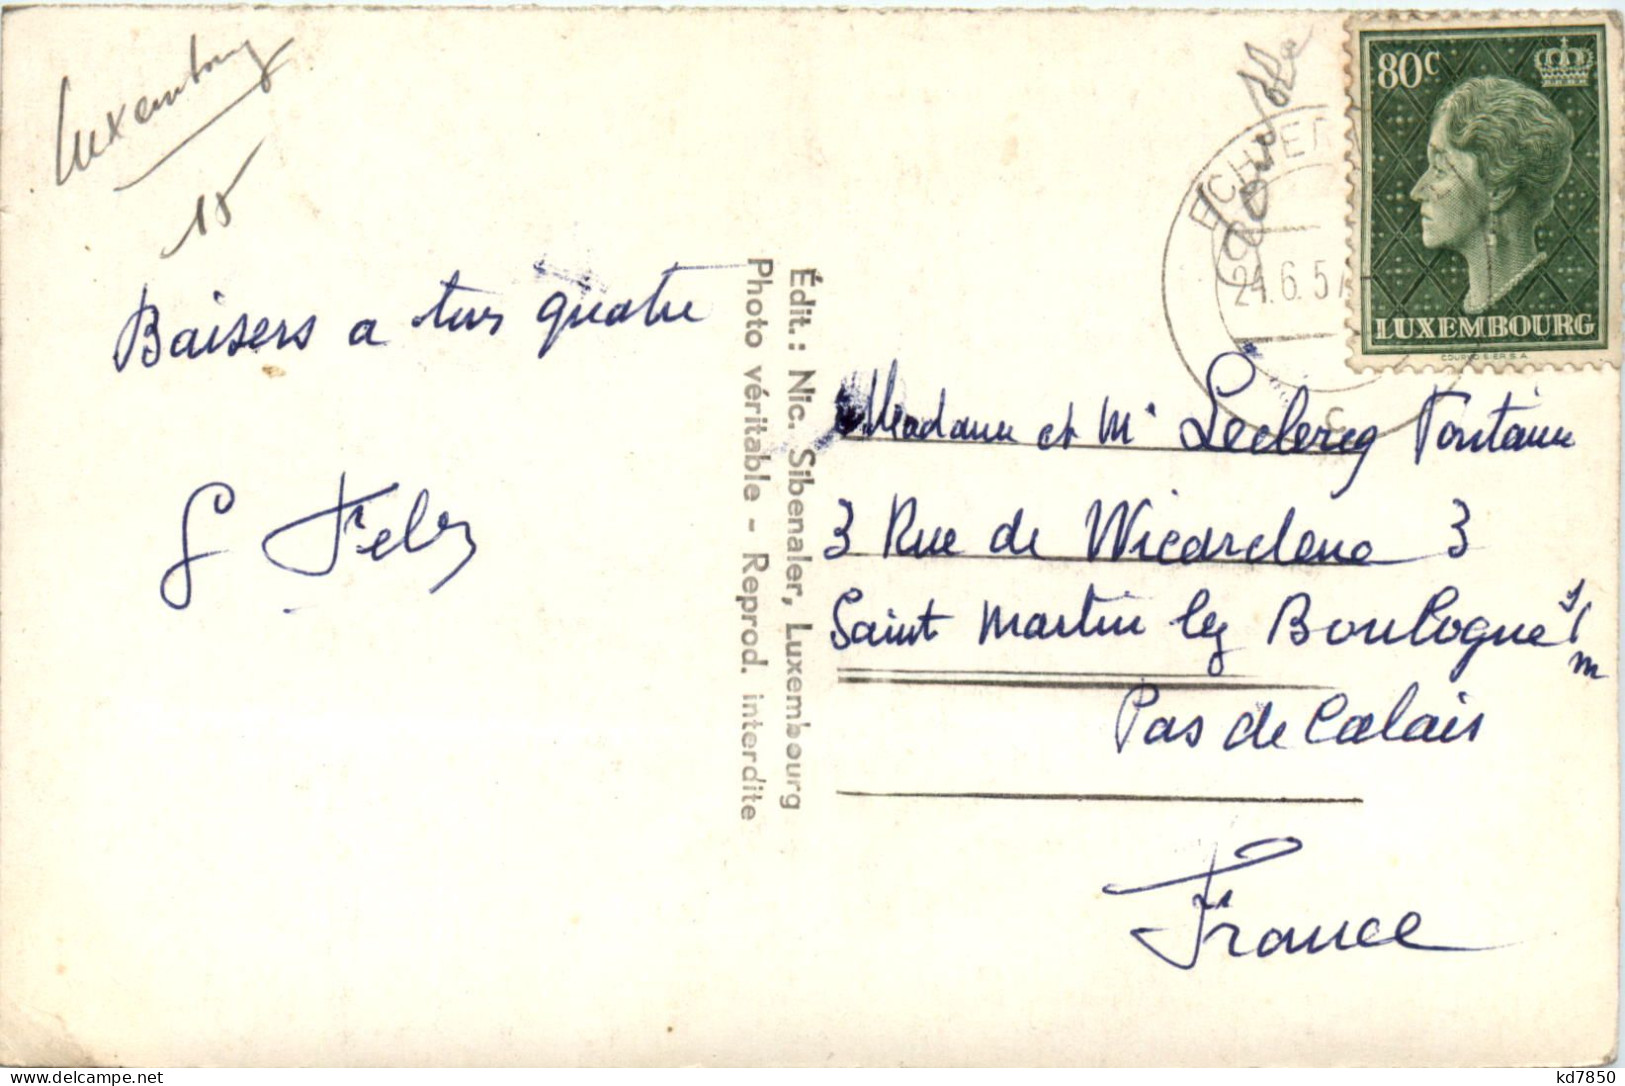 Luxembourg
15
Baisers a tous quatre
Édit.: Nic. Sibenaler, Luxembourg
Photo véritable - Reprod. interdite
80c
LUXEMBOURG
COURVOISIER S.A.
ECHTER
24.6.57
C
Madame et Mr Leclercq Fontaine
3 Rue de Wicardenne 3
Saint Martin lez Boulogne s/m
Pas de Calais
France
kd7850